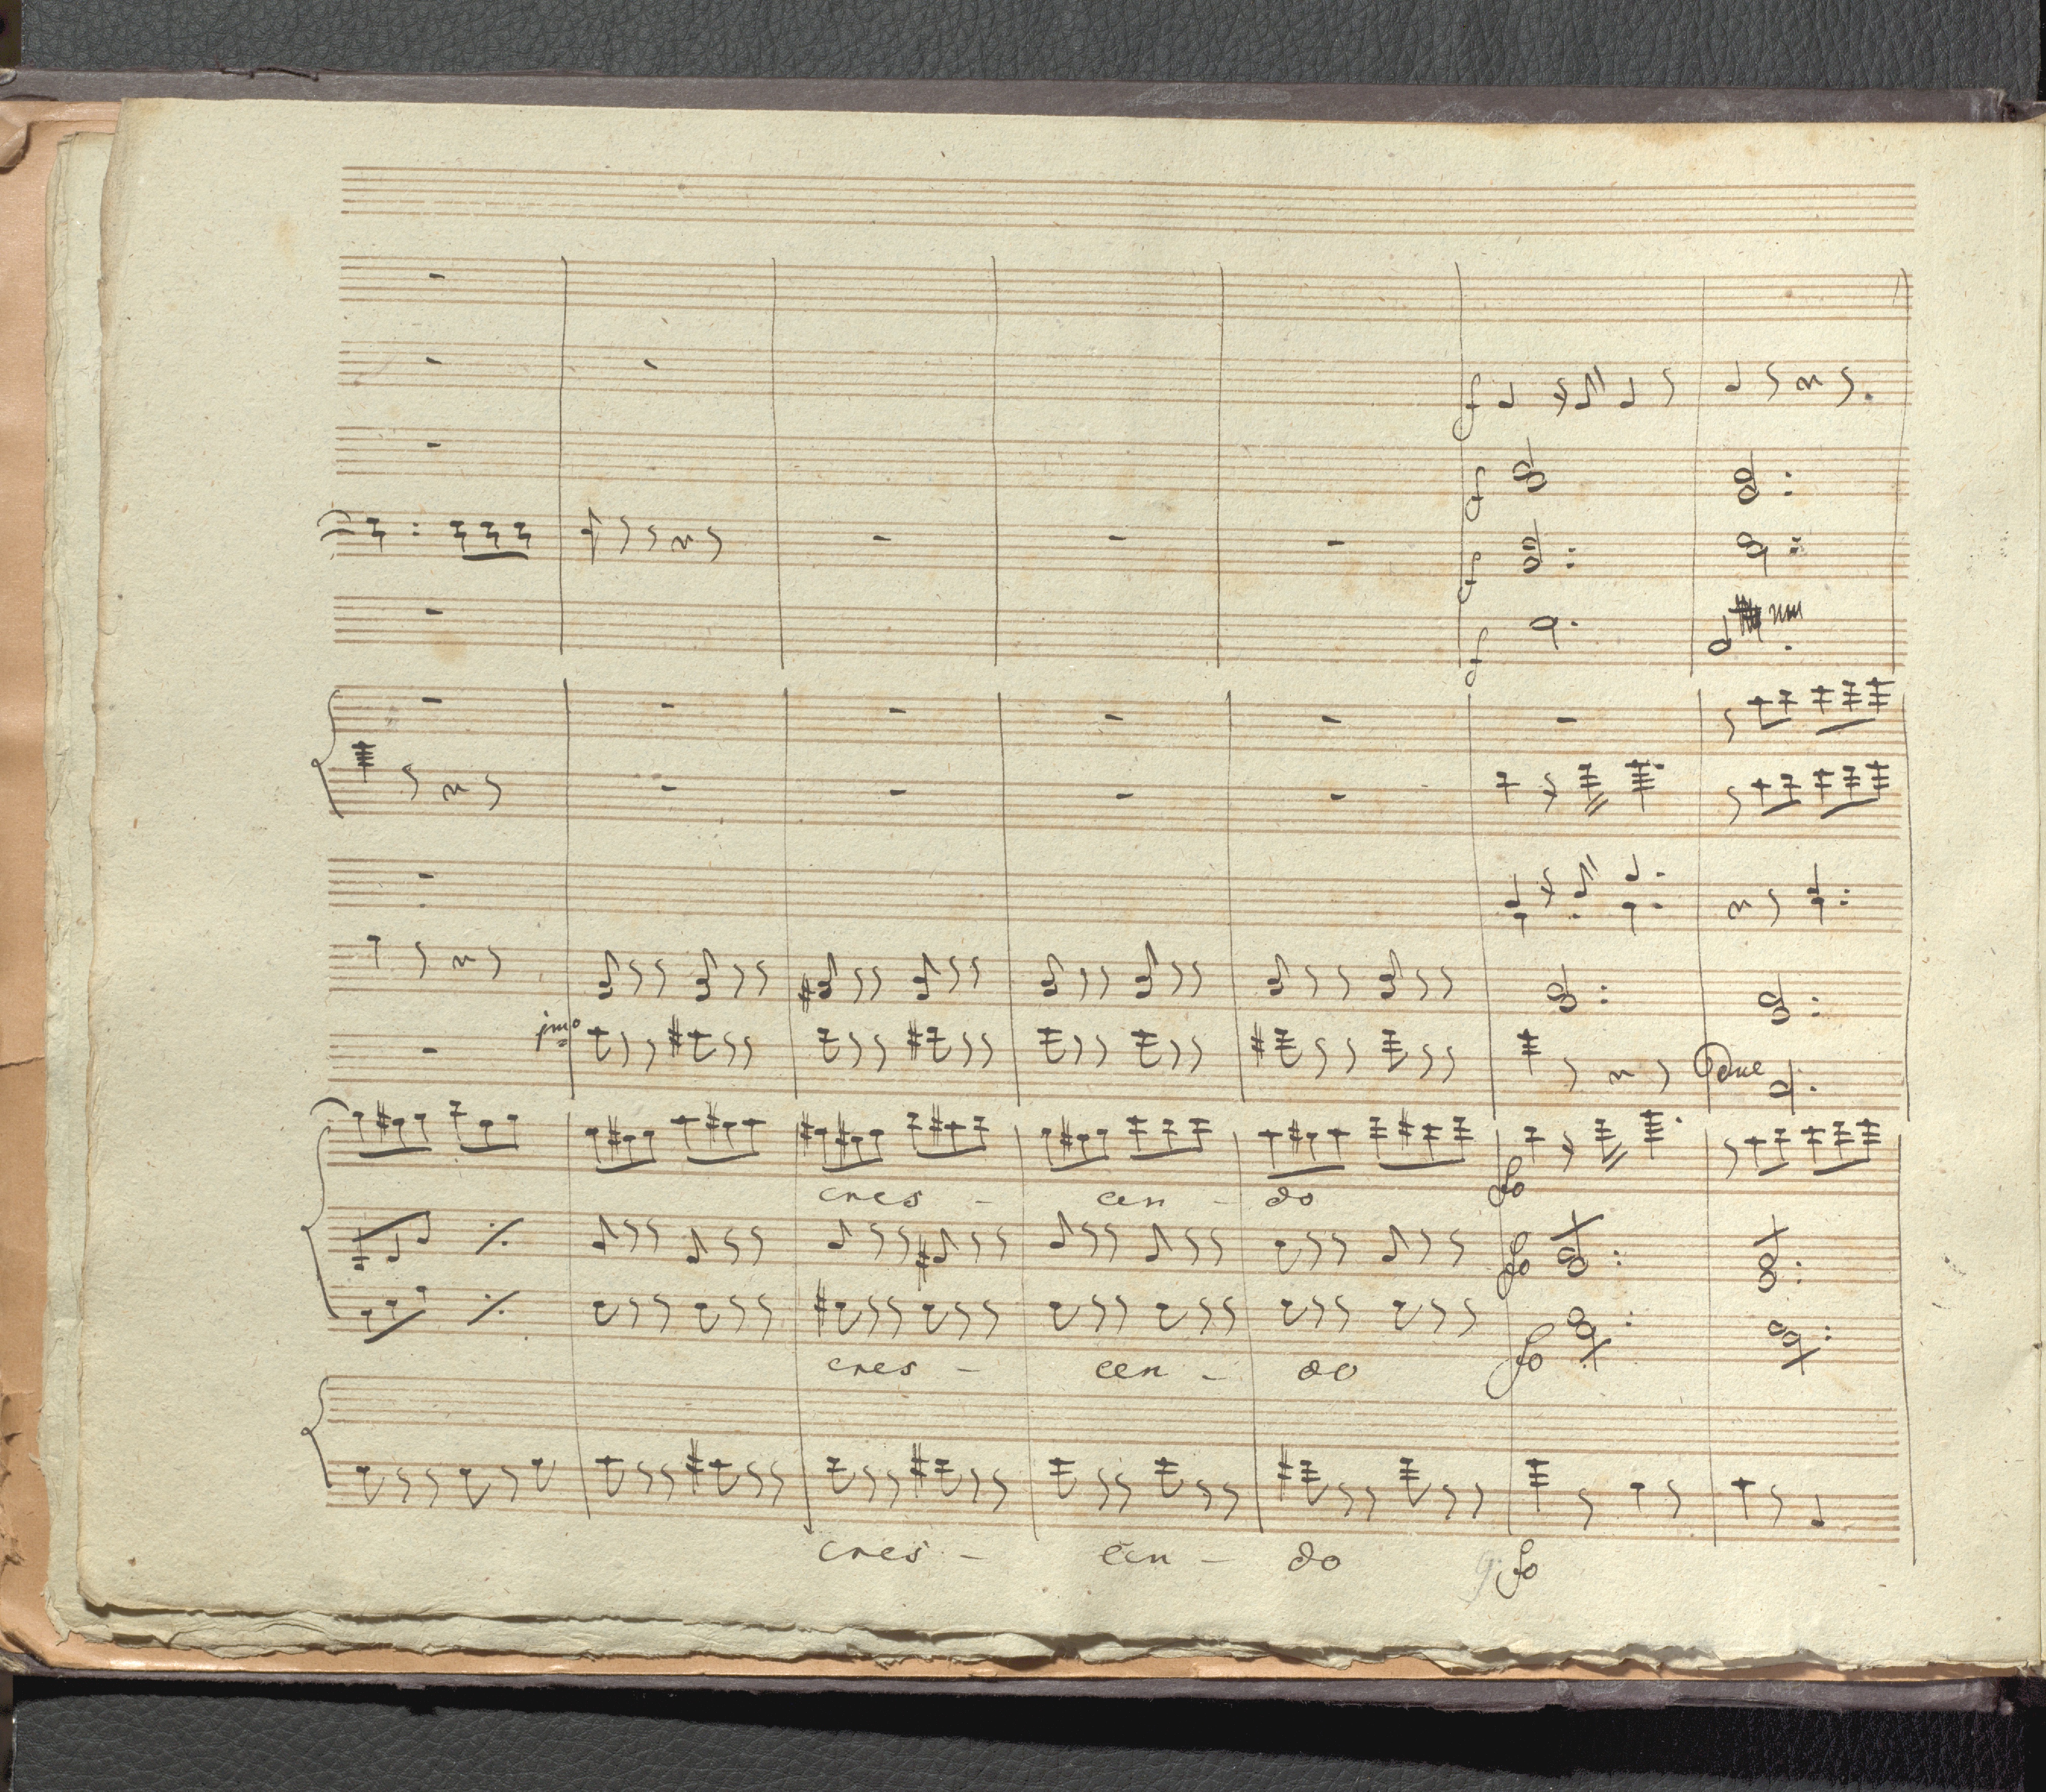 f
f
f
f
jmo
Due
cres - cen - do fo
fo
cres - cen - do fo
cres - cen - do fo